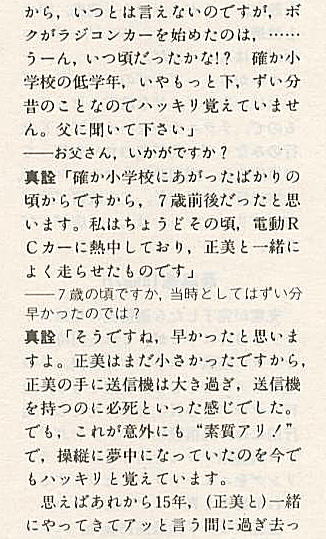 から，いつとは言えないのですが，ボ
クがラジコンカーを始めたのは，……
うーん，いつ頃だったかな!?　確か小
学校の低学年，いやもっと下，ずい分
昔のことなのでハッキリ覚えていませ
ん。父に聞いて下さい」
——お父さん，いかがですか？
真詮「確か小学校にあがったばかりの
頃からですから，７歳前後だったと思
います。私はちょうどその頃，電動Ｒ
Ｃカーに熱中しており，正美と一緒に
よく走らせたものです」
——７歳の頃ですか，当時としてはずい分
早かったのでは？
真詮「そうですね，早かったと思いま
すよ。正美はまだ小さかったですから，
正美の手に送信機は大き過ぎ，送信機
を持つのに必死といった感じでした。
でも，これが意外にも“素質アリ！”
で，操縦に夢中になっていたのを今で
もハッキリと覚えています。
　思えばあれから15年，(正美と)一緒
にやってきてアッと言う間に過ぎ去っ